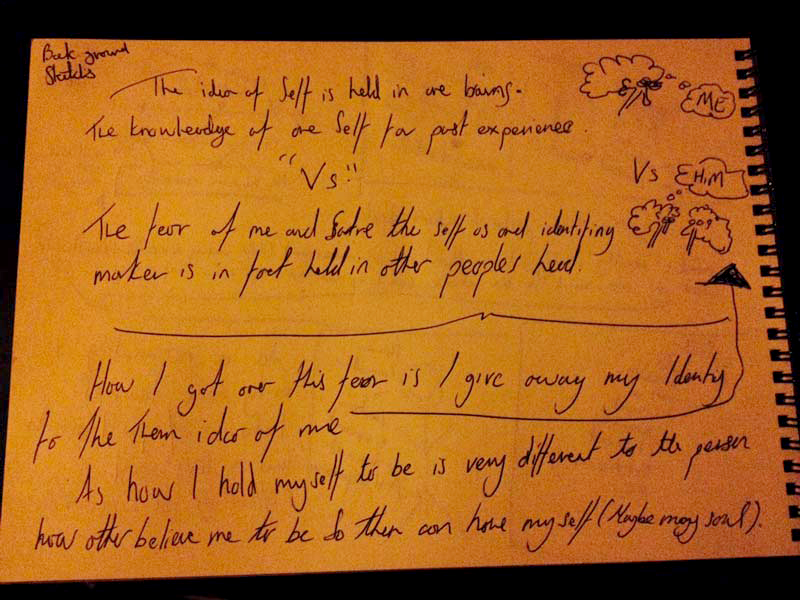 Back ground
Sketchs
The idea of Self is held in are bains.
The knowleadge of are Self for past experience.
"Vs"
The fear of me and Satre the self as and identifing
maker is in fact held in other peoples head.
ME
Vs
HiM
How I got over this fear is I give away my Identiy
to the them idea of me
As how I hold myself to be is very different to the person
how other believe me to be So then can have my self (Maybe may soul).